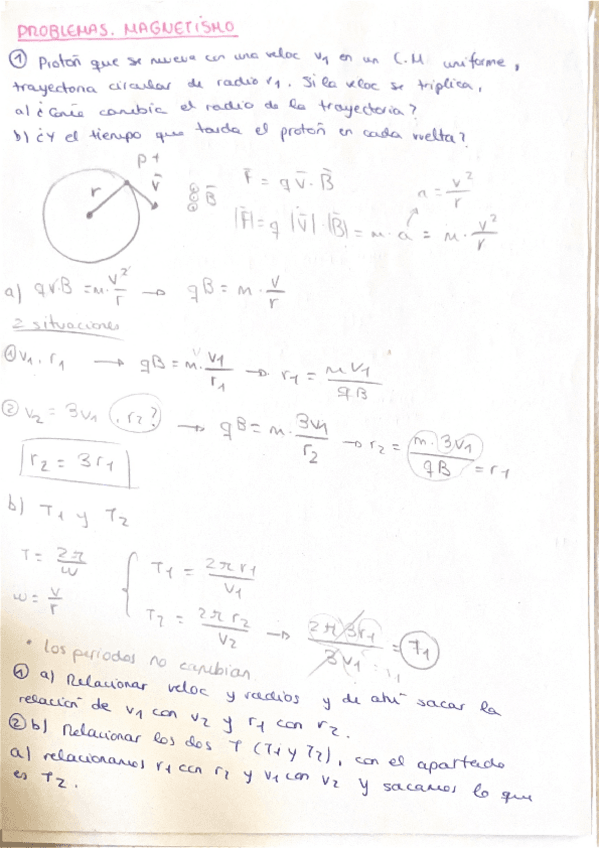 PROBLEMAS. MAGNETISMO
① Protoñ que se mueva con una veloc v1 en un C.M. uniforme,
trayectoria circular de radio r1. Si la veloc se triplica,
a) ¿Cómo cambia el radio de la trayectoria?
b) ¿Y el tiempo que tarda el protoñ en cada vuelta?
p+
r
v̄
B̄
F̄ = q v̄ · B̄
a = v²/r
|F̄| = q |v̄| · |B̄| = m · a = m · v²/r
a) qvB = m · v²/r → qB = m · v/r
2 situaciones
① v1, r1 → qB = m · v1/r1 → r1 = m v1/qB
② v2 = 3v1, r2? → qB = m · 3v1/r2 → r2 = m · 3v1/qB = r1
r2 = 3r1
b) T1 y T2
T = 2π/w
w = v/r
T1 = 2π r1/v1
T2 = 2π r2/v2 → 2π 3r1/3v1 = T1
• los periodos no cambian
① a) Relacionar veloc y radios y de ahí sacar la
relación de v1 con v2 y r1 con r2.
② b) Relacionar los dos T (T1 y T2), con el apartado
a) relacionamos r1 con r2 y v1 con v2 y sacamos lo que
es T2.